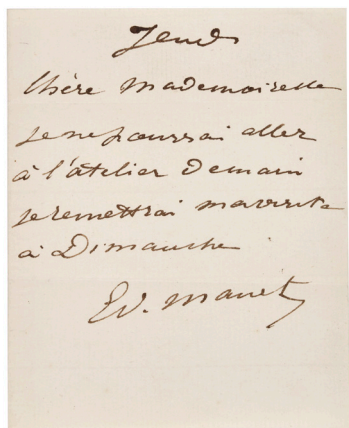 Jeudi
Chère Mademoiselle
je ne pourrai aller
à l'atelier Demain
je remettrai ma visite
à Dimanche
Ed. Manet